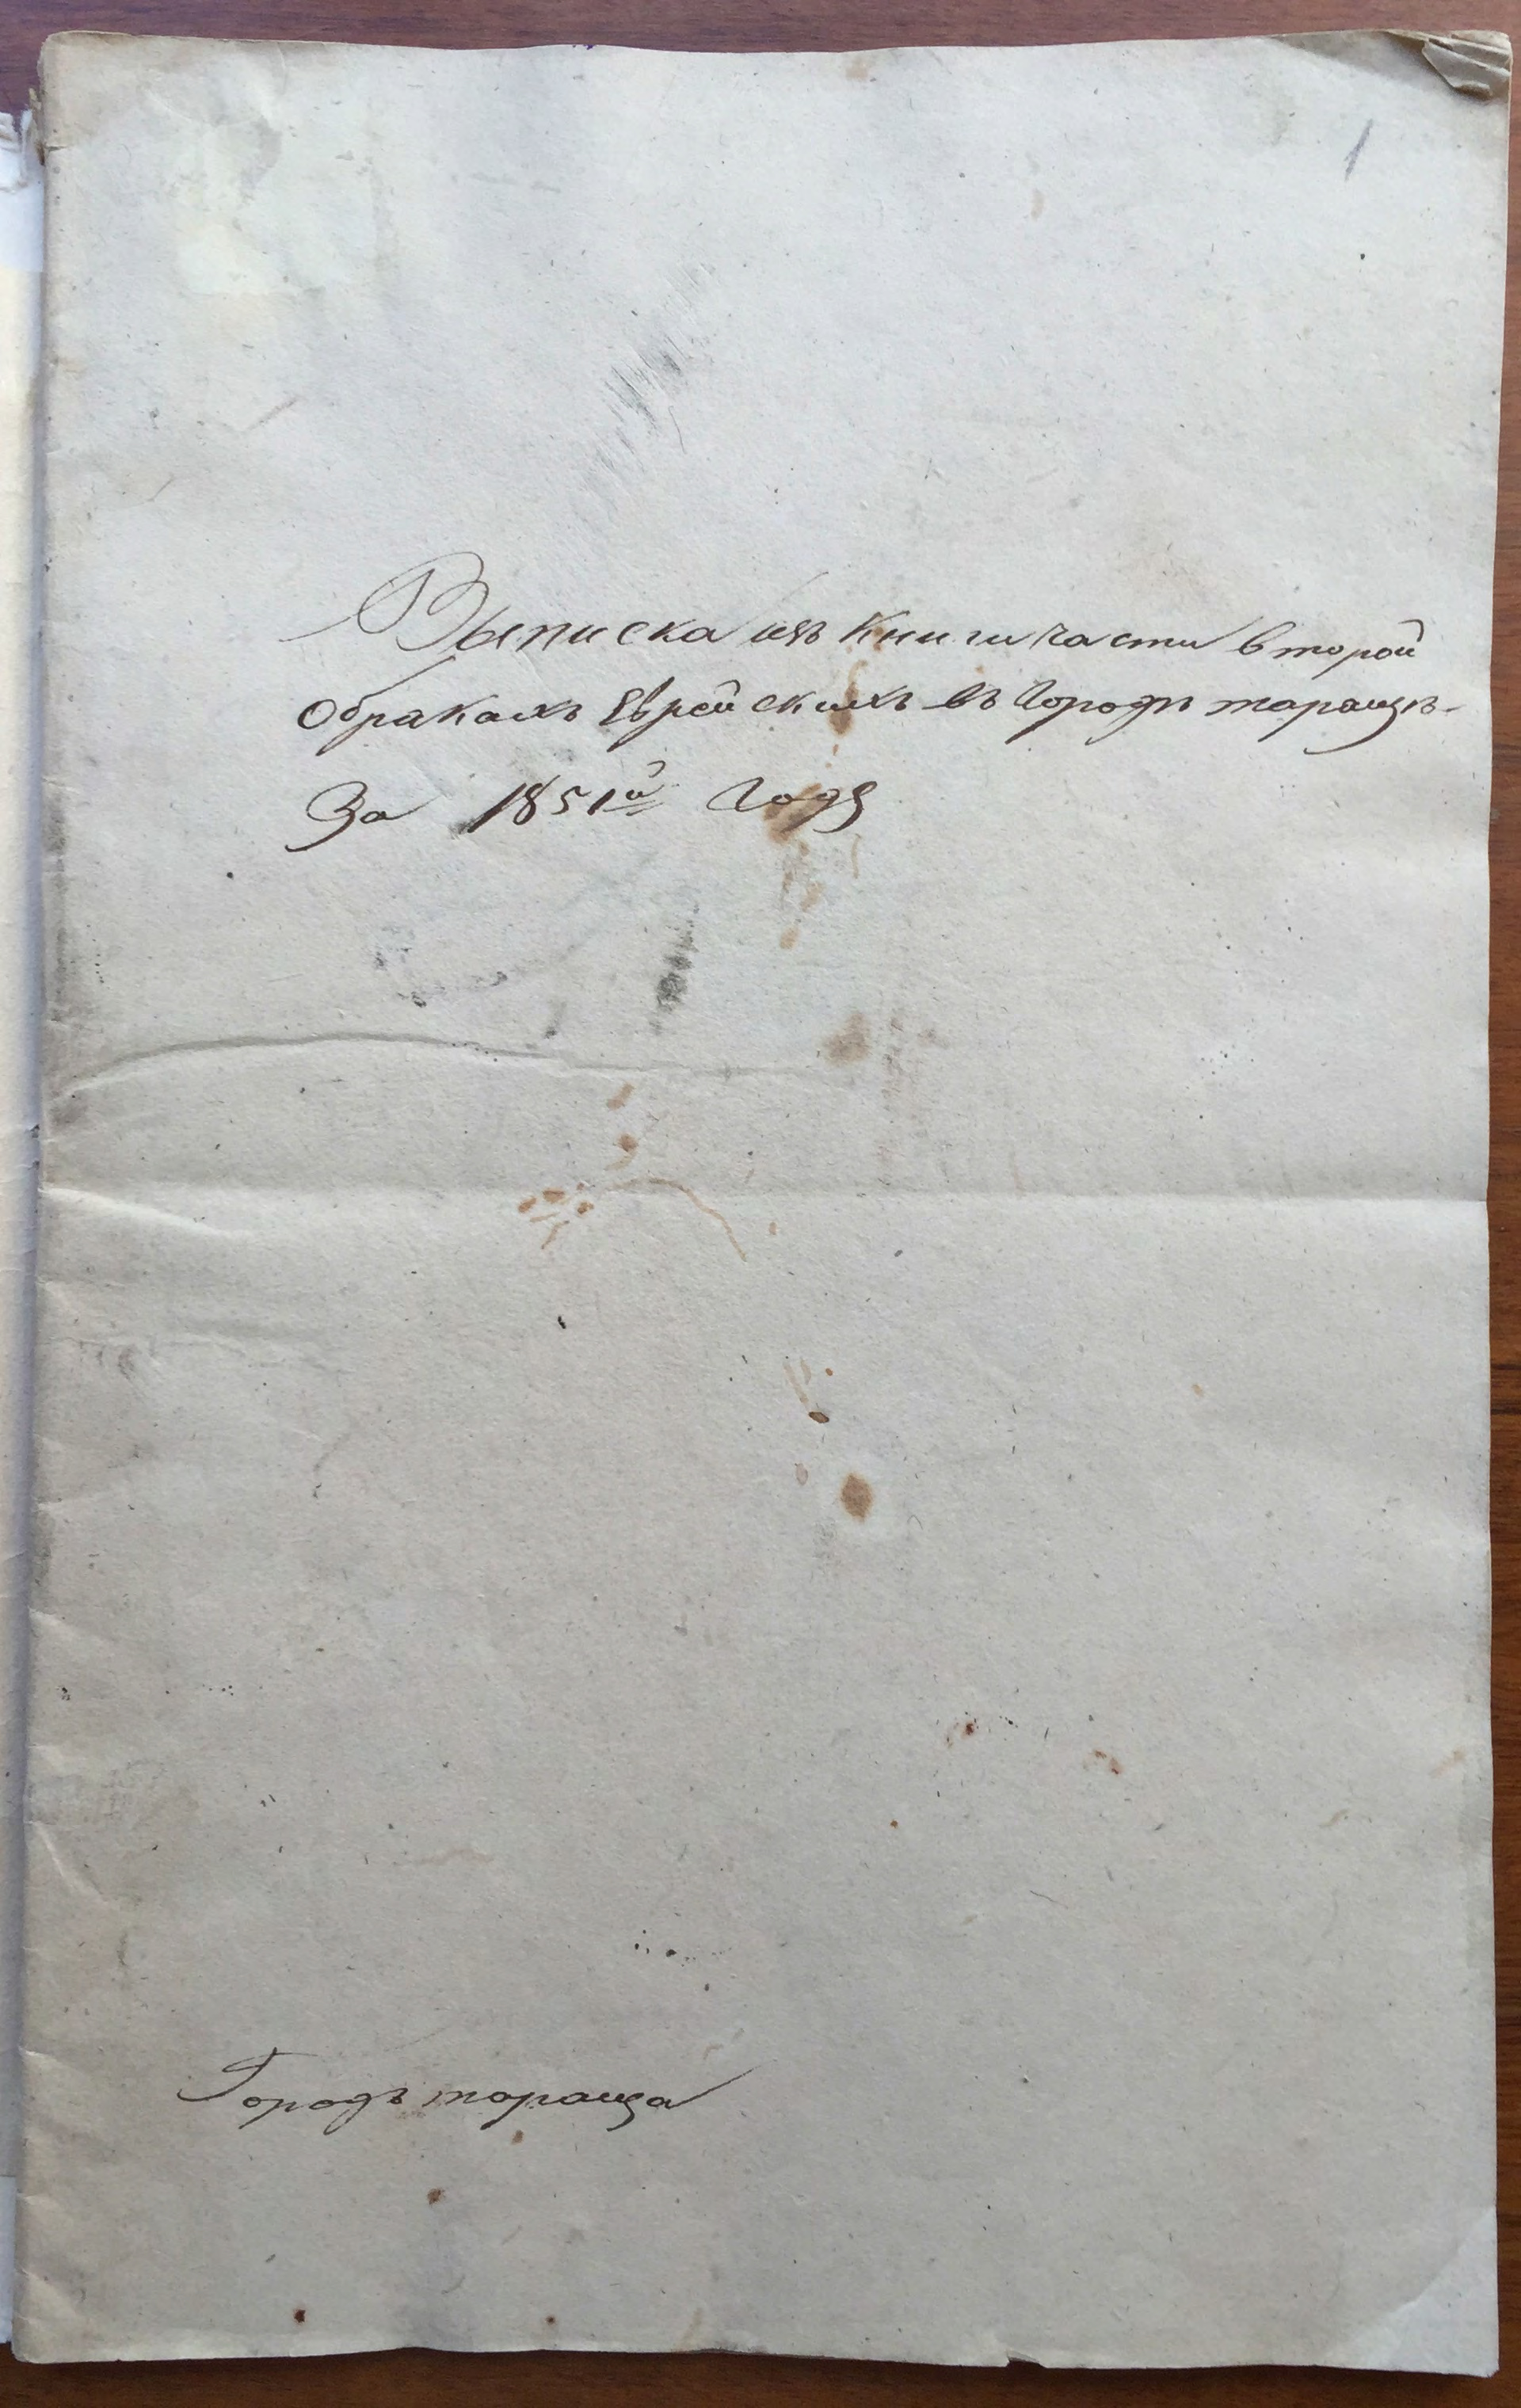 1
Выписка изъ Книги части второй
обракахъ Еврейскихъ въ Городѣ таращѣ
За 1851й Годъ
Городъ тараща